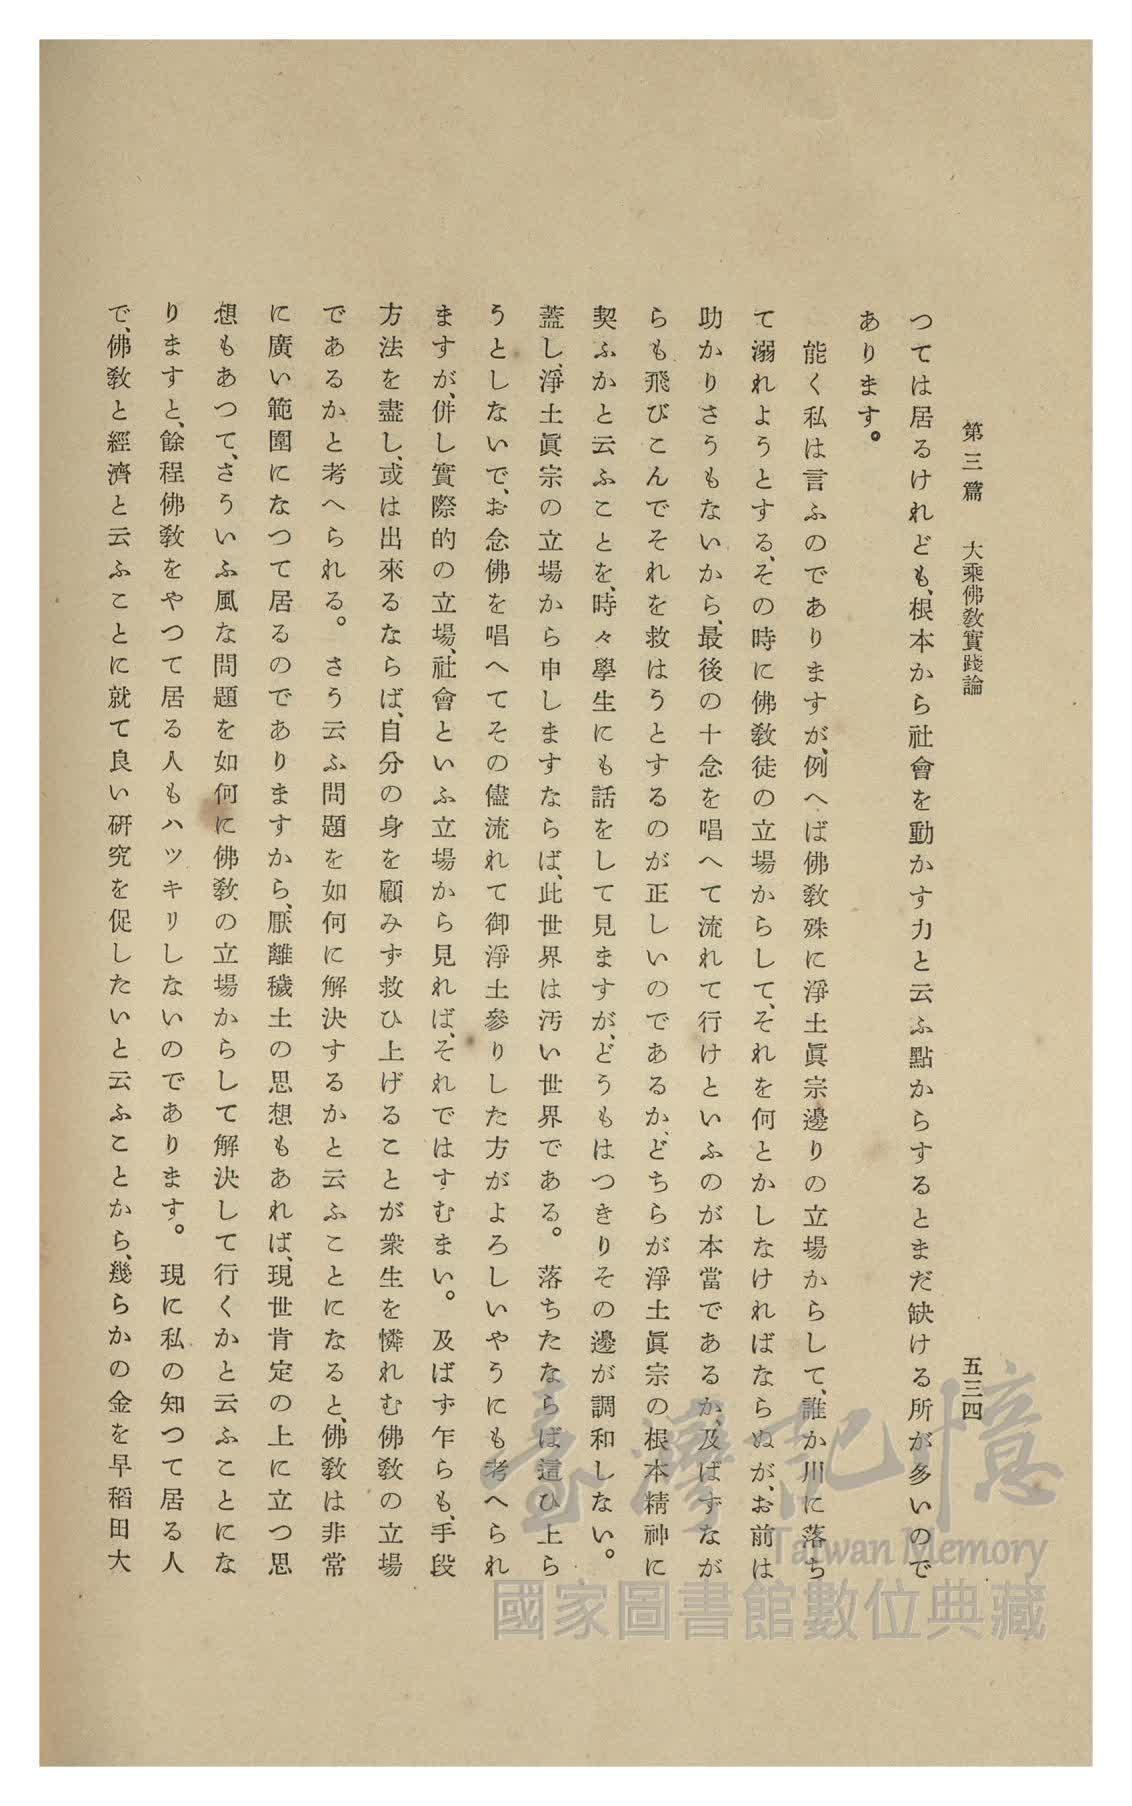 第三篇　大乘佛敎實踐論
五三四
つては居るけれども、根本から社會を動かす力と云ふ點からするとまだ缺ける所が多いので
あります。
能く私は言ふのでありますが、例へば佛敎殊に淨土眞宗邊りの立場からして、誰か川に落ち
て溺れようとする、その時に佛敎徒の立場からして、それを何とかしなければならぬが、お前は
助かりさうもないから、最後の十念を唱へて流れて行けといふのが本當であるか、及ばずなが
らも飛びこんでそれを救はうとするのが正しいのであるか、どちらが淨土眞宗の根本精神に
契ふかと云ふことを、時々學生にも話をして見ますが、どうもはつきりその邊が調和しない。
蓋し、淨土眞宗の立場から申しますならば、此世界は汚い世界である。落ちたならば這ひ上ら
うとしないで、お念佛を唱へてその儘流れて御淨土參りした方がよろしいやうにも考へられ
ますが、併し實際的の立場、社會といふ立場から見れば、それではすむまい。及ばず乍らも、手段
方法を盡し、或は出來るならば、自分の身を顧みず救ひ上げることが衆生を憐れむ佛敎の立場
であるかと考へられる。さう云ふ問題を如何に解決するかと云ふことになると、佛敎は非常
に廣い範圍になつて居るのでありますから、厭離穢土の思想もあれば、現世肯定の上に立つ思
想もあつて、さういふ風な問題を如何に佛敎の立場からして解決して行くかと云ふことにな
りますと、餘程佛敎をやつて居る人もハツキリしないのであります。現に私の知つて居る人
で、佛敎と經濟と云ふことに就て良い研究を促したいと云ふことから、幾らかの金を早稻田大
臺灣記憶
Taiwan Memory
國家圖書館數位典藏